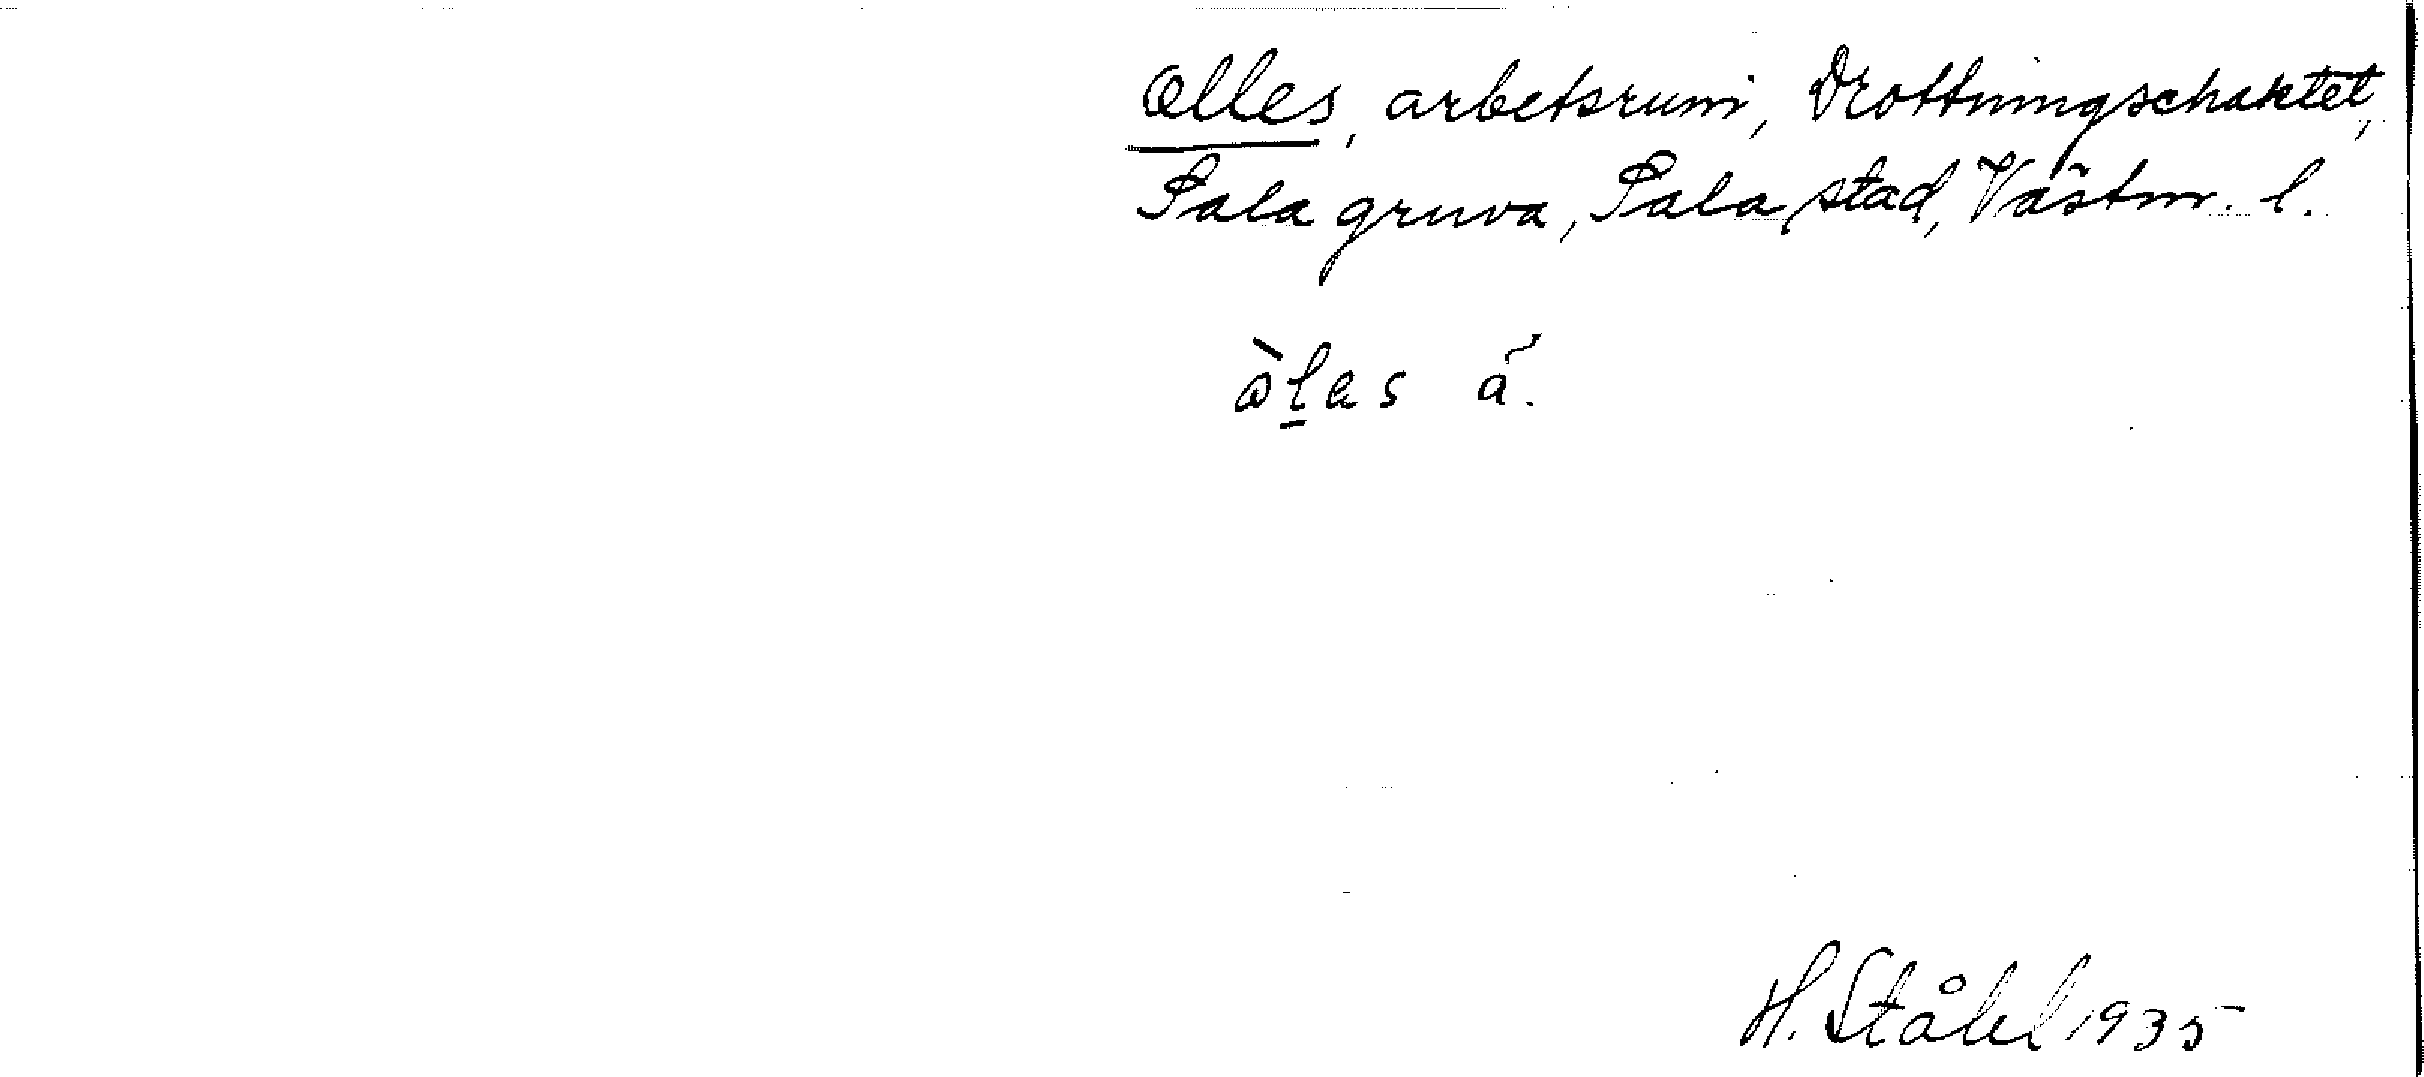 Olles, arbetsrum, Drottningschaktet,
Sala gruva, Sala stad, Västm. l.
òl̠es ã.
H. Ståhl 1935